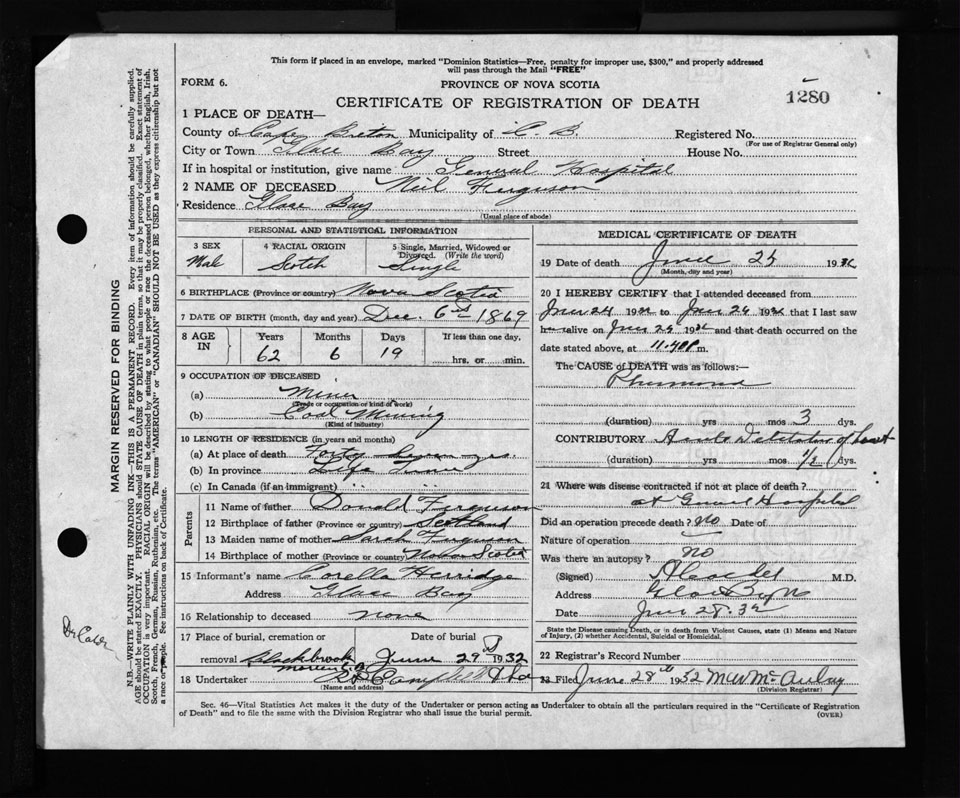 This form if placed in an envelope, marked "Dominion Statistics—Free, penalty for improper use, $300," and properly addressed
will pass through the Mail "FREE"
FORM 6.
PROVINCE OF NOVA SCOTIA
CERTIFICATE OF REGISTRATION OF DEATH
1280
1 PLACE OF DEATH—
County of Cape Breton Municipality of C. B. Registered No.
(For use of Registrar General only)
City or Town Glace Bay Street House No.
If in hospital or institution, give name General Hospital
2 NAME OF DECEASED Neil Ferguson
Residence Glace Bay
(Usual place of abode)
PERSONAL AND STATISTICAL INFORMATION
3 SEX 4 RACIAL ORIGIN 5 Single, Married, Widowed or Divorced. (Write the word)
Male Scotch Single
6 BIRTHPLACE (Province or country) Nova Scotia
7 DATE OF BIRTH (month, day and year) Dec. 6 1869
8 AGE IN Years Months Days If less than one day.
62 6 19 hrs. or min.
9 OCCUPATION OF DECEASED
(a) Miner
(Trade or occupation or kind of work)
(b) Coal Mining
(Kind of industry)
10 LENGTH OF RESIDENCE (in years and months)
(a) At place of death Forty
(b) In province Life Time
(c) In Canada (if an immigrant)
Parents
11 Name of father Donald Ferguson
12 Birthplace of father (Province or country) Scotland
13 Maiden name of mother Sarah Ferguson
14 Birthplace of mother (Province or country) Nova Scotia
15 Informant's name Corella Herridge
Address Glace Bay
16 Relationship to deceased none
17 Place of burial, cremation or Date of burial
removal Blackbrook June 29 1932
18 Undertaker Campbell
(Name and address)
MEDICAL CERTIFICATE OF DEATH
19 Date of death June 25 1932
(Month, day and year)
20 I HEREBY CERTIFY that I attended deceased from
June 24 1932 to June 25 1932 that I last saw
him alive on June 25 1932 and that death occurred on
date stated above, at 11.40 P m.
The CAUSE of DEATH was as follows:—
Pneumonia
(duration) yrs mos 3 dys.
CONTRIBUTORY Acute Dilatation of heart
(duration) yrs mos 1/2 dys.
21 Where was disease contracted if not at place of death?
at General Hospital
Did an operation precede death? No Date of
Nature of operation
Was there an autopsy? No
(Signed) M.D.
Address Glace Bay NS
Date June 28. 32
State the Disease causing Death, or in death from Violent Causes, state (1) Means and Nature
of Injury, (2) whether Accidental, Suicidal or Homicidal.
22 Registrar's Record Number
23 Filed June 28th 1932 McAulay
(Division Registrar)
Sec. 46—Vital Statistics Act makes it the duty of the Undertaker or person acting as Undertaker to obtain all the particulars required in the "Certificate of Registration
of Death" and to file the same with the Division Registrar who shall issue the burial permit.
(OVER)
MARGIN RESERVED FOR BINDING
N.B.—WRITE PLAINLY WITH UNFADING INK—THIS IS A PERMANENT RECORD. Every item of information should be carefully supplied.
AGE should be stated EXACTLY. PHYSICIANS should STATE CAUSE OF DEATH in plain terms, so that it may be properly classified. Exact statement of
OCCUPATION is very important. RACIAL ORIGIN will be described by stating to what people or race the deceased person belonged, whether English, Irish,
Scotch, French, German, Russian, Ruthenian, etc. The terms "AMERICAN" or "CANADIAN" SHOULD NOT BE USED as they express citizenship but not
a race or people. See instructions on back of Certificate.